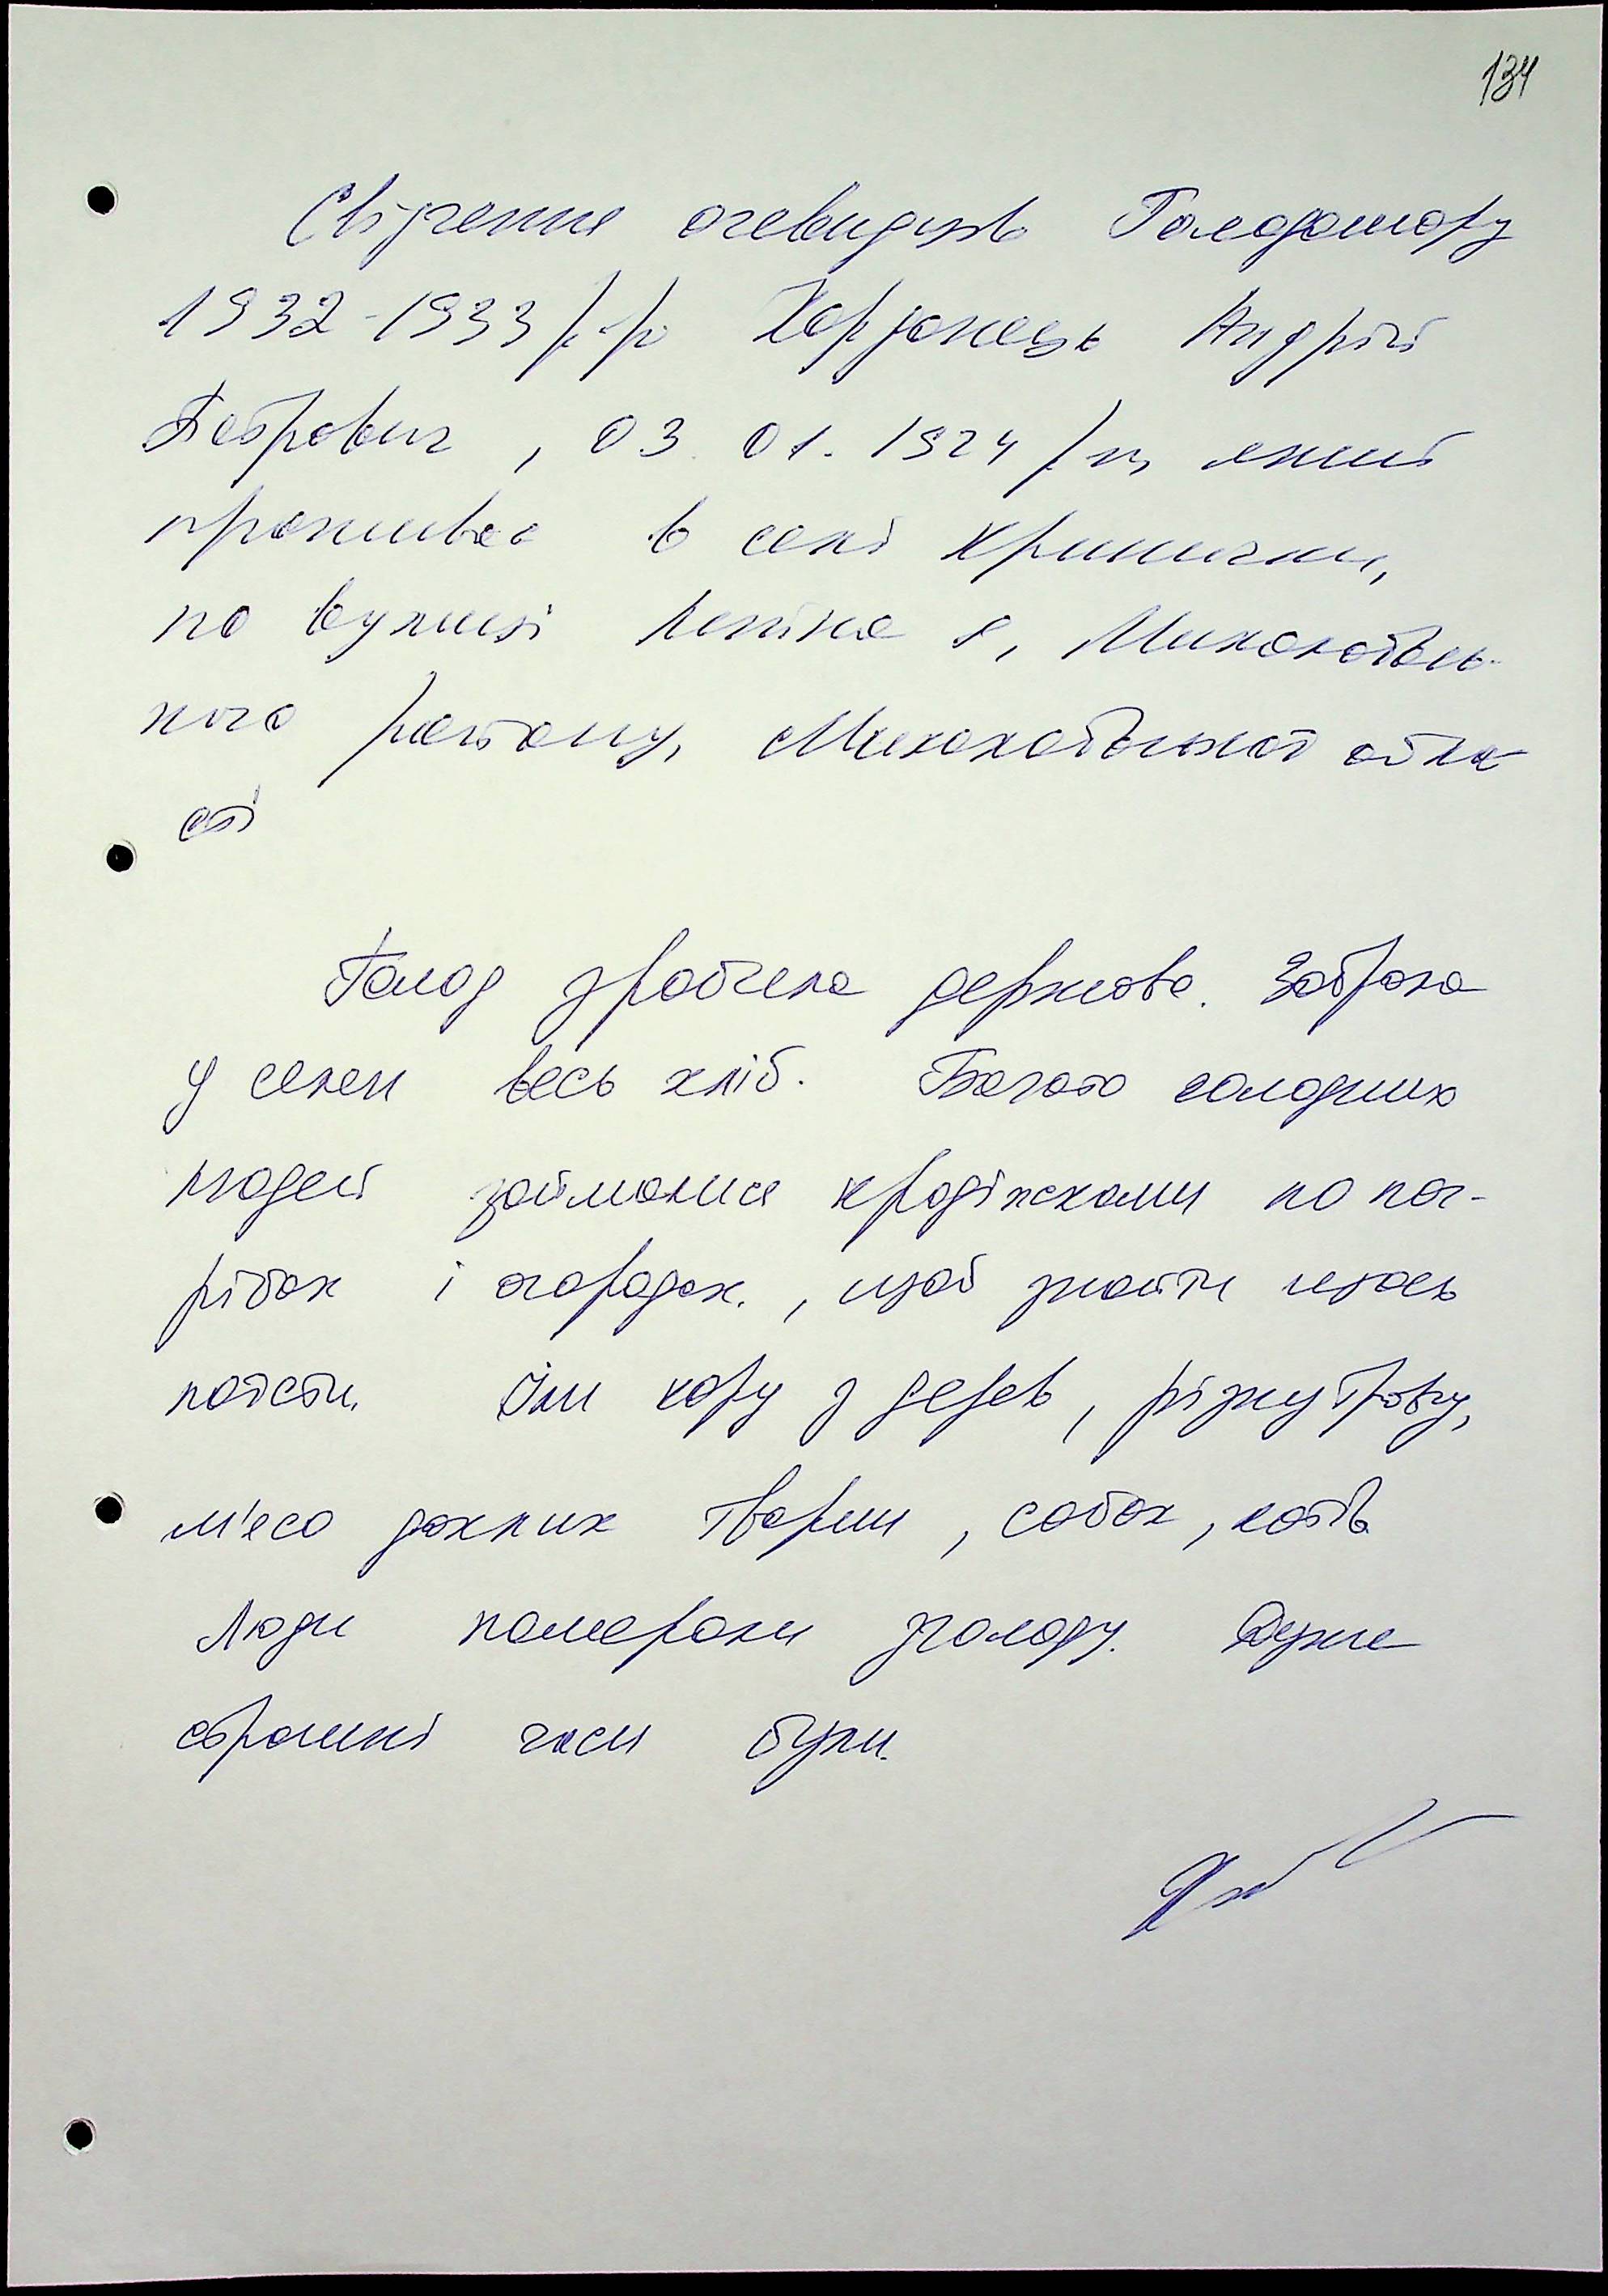 134
Свідчення очевидців Голодомору
1932-1933 р.р. Хардонець Андрій
Петрович, 03.01.1924 р.н, який
проживає в селі Кринички,
по вулиці Леніна 8, Миколаївсь-
кого району, Миколаївської обла-
сті
Голод зробила держава. Забрала
у селян весь хліб. Багато голодних
людей займалися крадіжками по пог-
рібах і огородах., щоб знайти щось
поїсти. Їли кору з дерев, різну траву,
м'ясо дохлих тварин, собак, котів
Люди помирали з голоду. Дуже
страшні часи були.